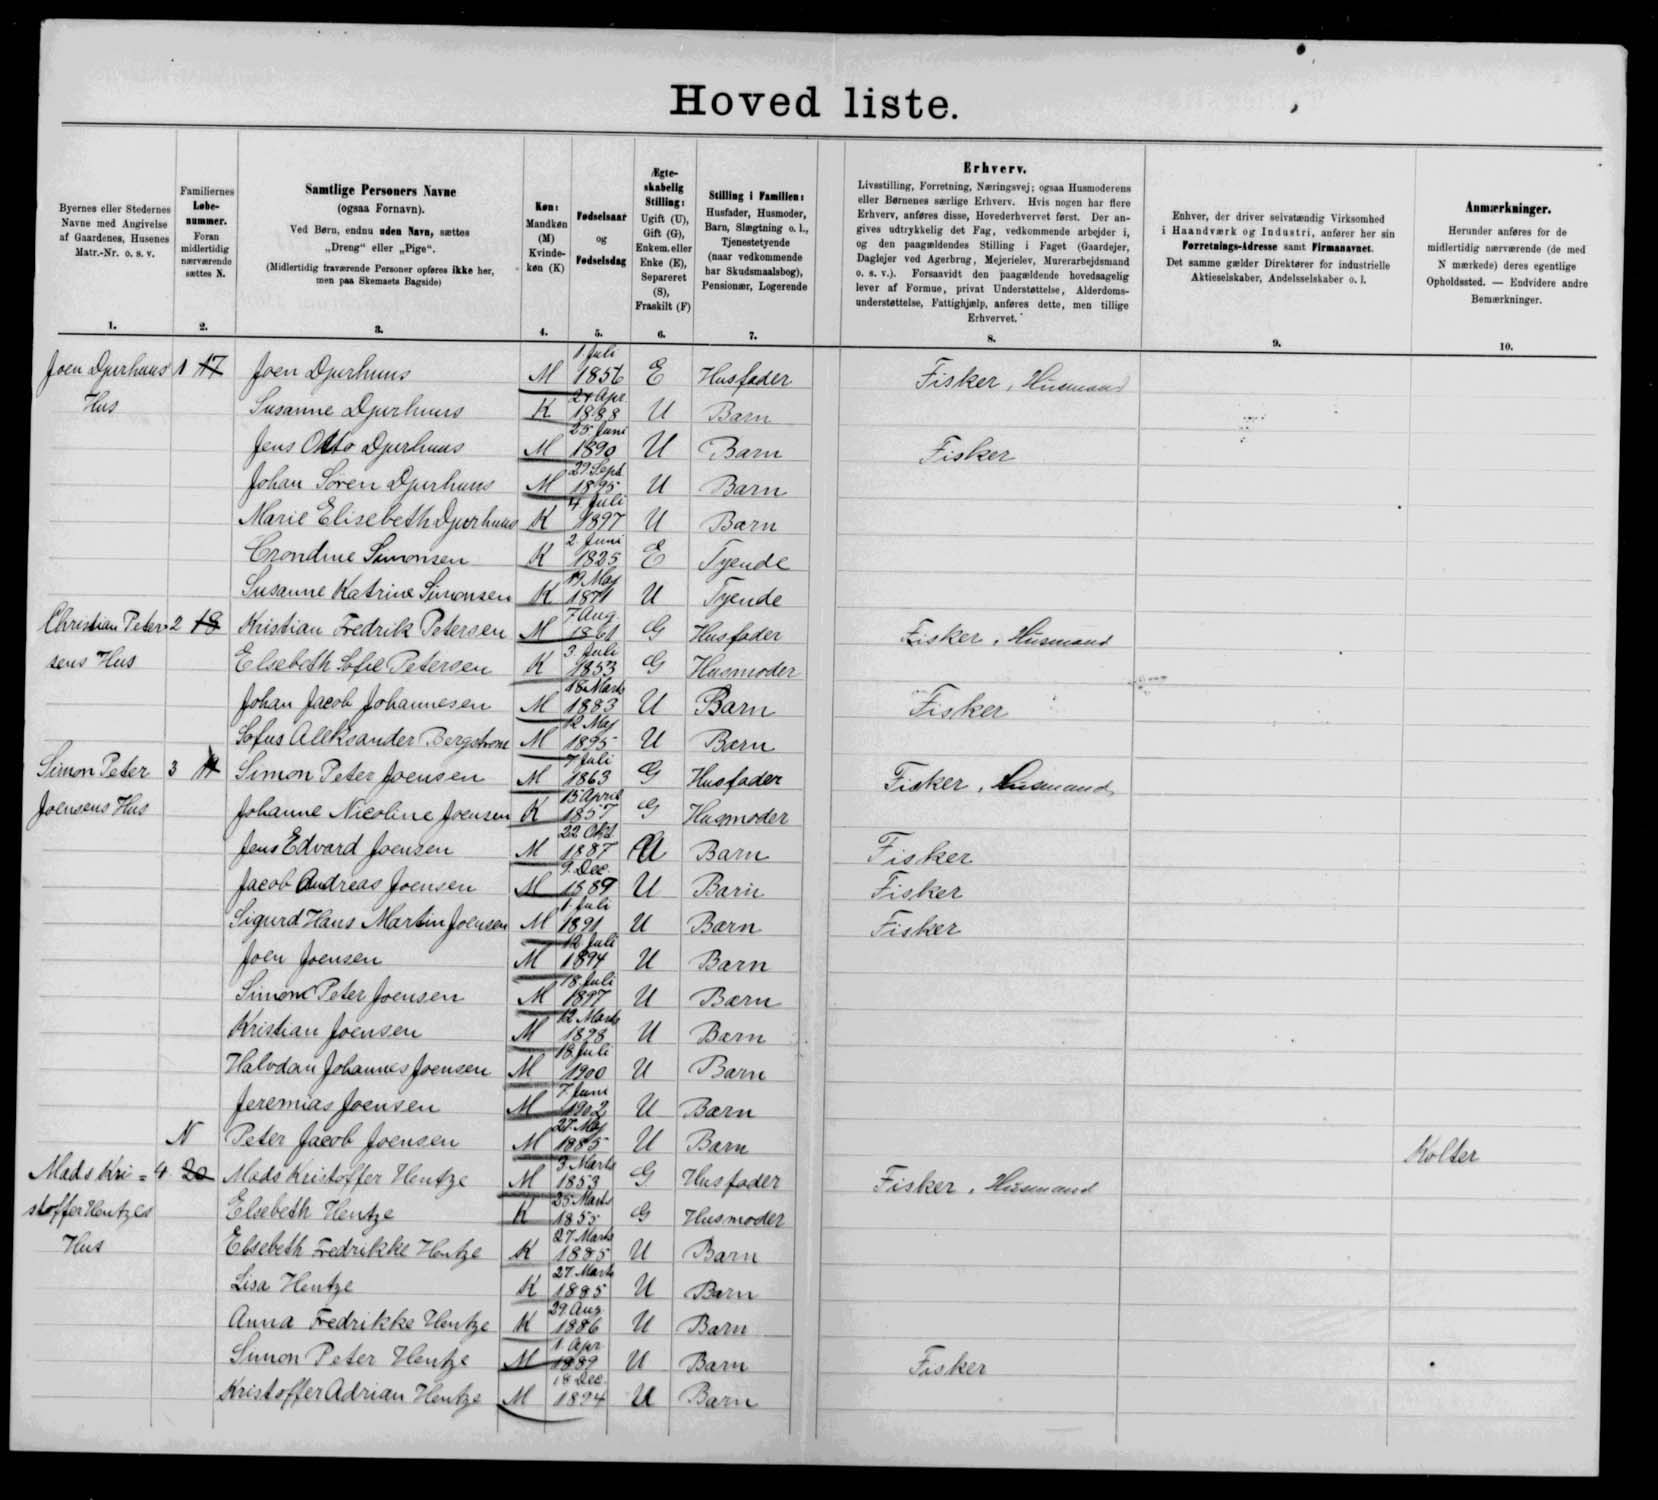 Hoved liste.
Byernes eller Stedernes Navne med Angivelse af Gaardenes, Husenes Matr.-Nr. o. s. v.
1.
Familiernes Løbe-nummer. Foran midlertidig nærværende sættes N.
2.
Samtlige Personers Navne
(ogsaa Fornavn).
Ved Børn, endnu uden Navn, sættes „Dreng“ eller „Pige“.
(Midlertidig fraværende Personer opføres ikke her, men paa Skemaets Bagside)
3.
Køn: Mandkøn (M) Kvinde-køn (K)
4.
Fødselsaar og Fødselsdag
5.
Ægte-skabelig Stilling: Ugift (U), Gift (G), Enkem. eller Enke (E), Separeret (S), Fraskilt (F)
6.
Stilling i Familien: Husfader, Husmoder, Barn, Slægtning o. l., Tjenestetyende (naar vedkommende har Skudsmaalsbog), Pensionær, Logerende
7.
Erhverv.
Livsstilling, Forretning, Næringsvej; ogsaa Husmoderens eller Børnenes særlige Erhverv. Hvis nogen har flere Erhverv, anføres disse, Hovederhvervet først. Der an-gives udtrykkelig det Fag, vedkommende arbejder i, og den paagældendes Stilling i Faget (Gaardejer, Daglejer ved Agerbrug, Mejerielev, Murerarbejdsmand o. s. v.). Forsaavidt den paagældende hovedsagelig lever af Formue, privat Understøttelse, Alderdoms-understøttelse, Fattighjælp, anføres dette, men tillige Erhvervet.
8.
Enhver, der driver selvstændig Virksomhed i Haandværk og Industri, anfører her sin Forretnings-Adresse samt Firmanavnet. Det samme gælder Direktører for industrielle Aktieselskaber, Andelsselskaber o. l.
9.
Anmærkninger.
Herunder anføres for de midlertidig nærværende (de med N mærkede) deres egentlige Opholdssted. — Endvidere andre Bemærkninger.
10.
Joen Djurhuus 1 17 Joen Djurhuus M 1 Juli 1856 E Husfader Fisker, Husmand
Hus Susanne Djurhuus K 24 Apr 1888 U Barn
Jens Otto Djurhuus M 25 Juni 1890 U Barn Fisker
Johan Sören Djurhuus M 29 Sept 1895 U Barn
Marie Elisebeth Djurhuus K 4 Juli 1897 U Barn
Crondine Simonsen K 2. Juni 1825 E Tyende
Susanne Katrine Simonsen K 19 Maj 1871 U Tyende
Christian Peter= 2 18 Kristian Fredrik Petersen M 7 Aug 1861 G Husfader Fisker, Husmand
sens Hus Elsebeth Sofie Petersen K 3. Juli 1853 G Husmoder
Johan Jacob Johannesen M 18 Marts 1883 U Barn Fisker
Sofus Alleksander Bergstrom M 12 Maj 1895 U Barn
Simon Peter 3 Simon Peter Joensen M 7 Juli 1863 G Husfader Fisker, Husmand
Joensens Hus Johanne Nicoline Joensen K 15 April 1857 G Husmoder
Jens Edvard Joensen M 22 Okt 1887 U Barn Fisker
Jacob Andreas Joensen M 9. Dec. 1889 U Barn Fisker
Sigurd Hans Martin Joensen M 1. Juli 1891 U Barn Fisker
Joen Joensen M 12 Juli 1894 U Barn
Simon Peter Joensen M 18 Juli 1897 U Barn
Kristian Joensen M 12 Marts 1898 U Barn
Halvdan Johannes Joensen M 18 Juli 1900 U Barn
Jeremias Joensen M 7. Juni 1902 U Barn
N Peter Jacob Joensen M 27. Maj 1885 U Barn Kolter
Mads Kri= 4 20 Mads Kristoffer Hentze M 3 Marts 1853 G. Husfader Fisker, Husmand
stoffer Hentzes Elsebeth Hentze K 25 Marts 1855 G Husmoder
Hus Elsebeth Fredrikke Hentze K 27 Marts 1885 U Barn
Lisa Hentze K 27 Marts 1885 U Barn
Anna Fredrikke Hentze K 29 Aug 1886 U Barn
Simon Peter Hentze M 1. Apr 1889 U Barn Fisker
Kristoffer Adrian Hentze M 18 Dec. 1894 U Barn